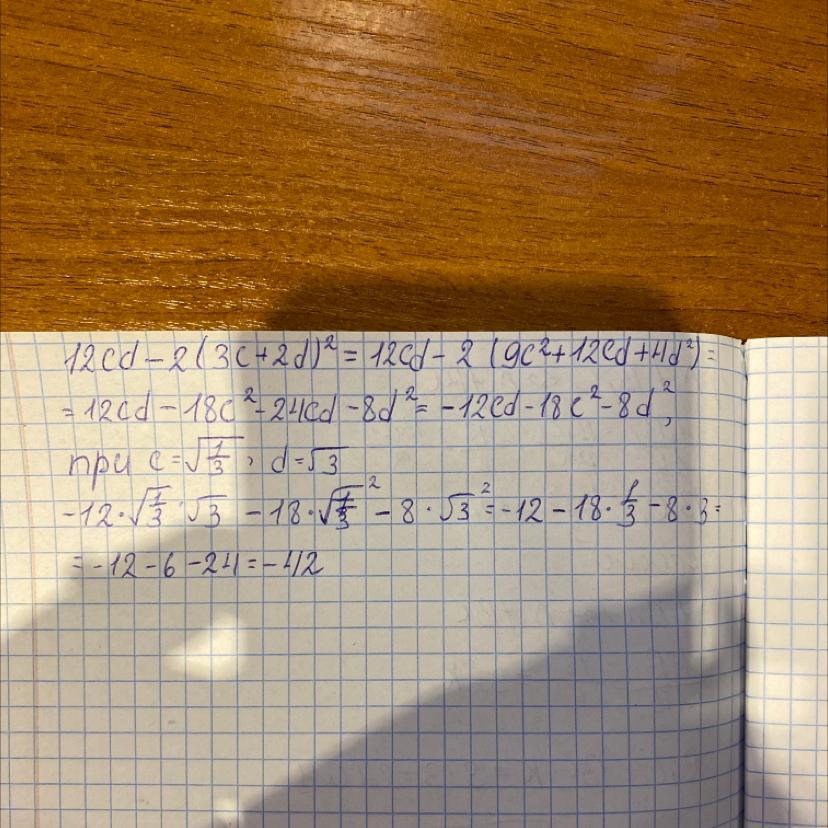 12cd - 2(3c+2d)² = 12cd - 2 (9c²+12cd+4d²) =
= 12cd - 18c² - 24cd - 8d² = -12cd - 18c² - 8d²,
при c = √(1/3), d = √3
-12·√(1/3)·√3 - 18·√(1/3)² - 8·√3² = -12 - 18·1/3 - 8·3 =
= -12 - 6 - 24 = -42